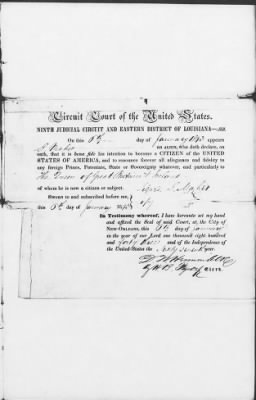 Circuit Court of the United States.
NINTH JUDICIAL CIRCUIT AND EASTERN DISTRICT OF LOUISIANA—
On this 6th day of January appears
an ALIEN, who doth declare, on
oath, that it is bona fide his intention to become a CITIZEN of the UNITED
STATES OF AMERICA, and to renounce forever all allegiance and fidelity to
any foreign Prince, Potentate, State or Sovereignty whatever, and particularly to
The Queen of Great Britain & Ireland
of whom he is now a citizen or subject.
Sworn to and subscribed before me,
this 6th day of January
In Testimony whereof, I have hereunto set my hand
and affixed the Seal of said Court, at the City of
NEW-ORLEANS, this 6th day of January
in the year of our Lord one thousand eight hundred
and forty and of the Independence of
the United States the year.
Clerk.